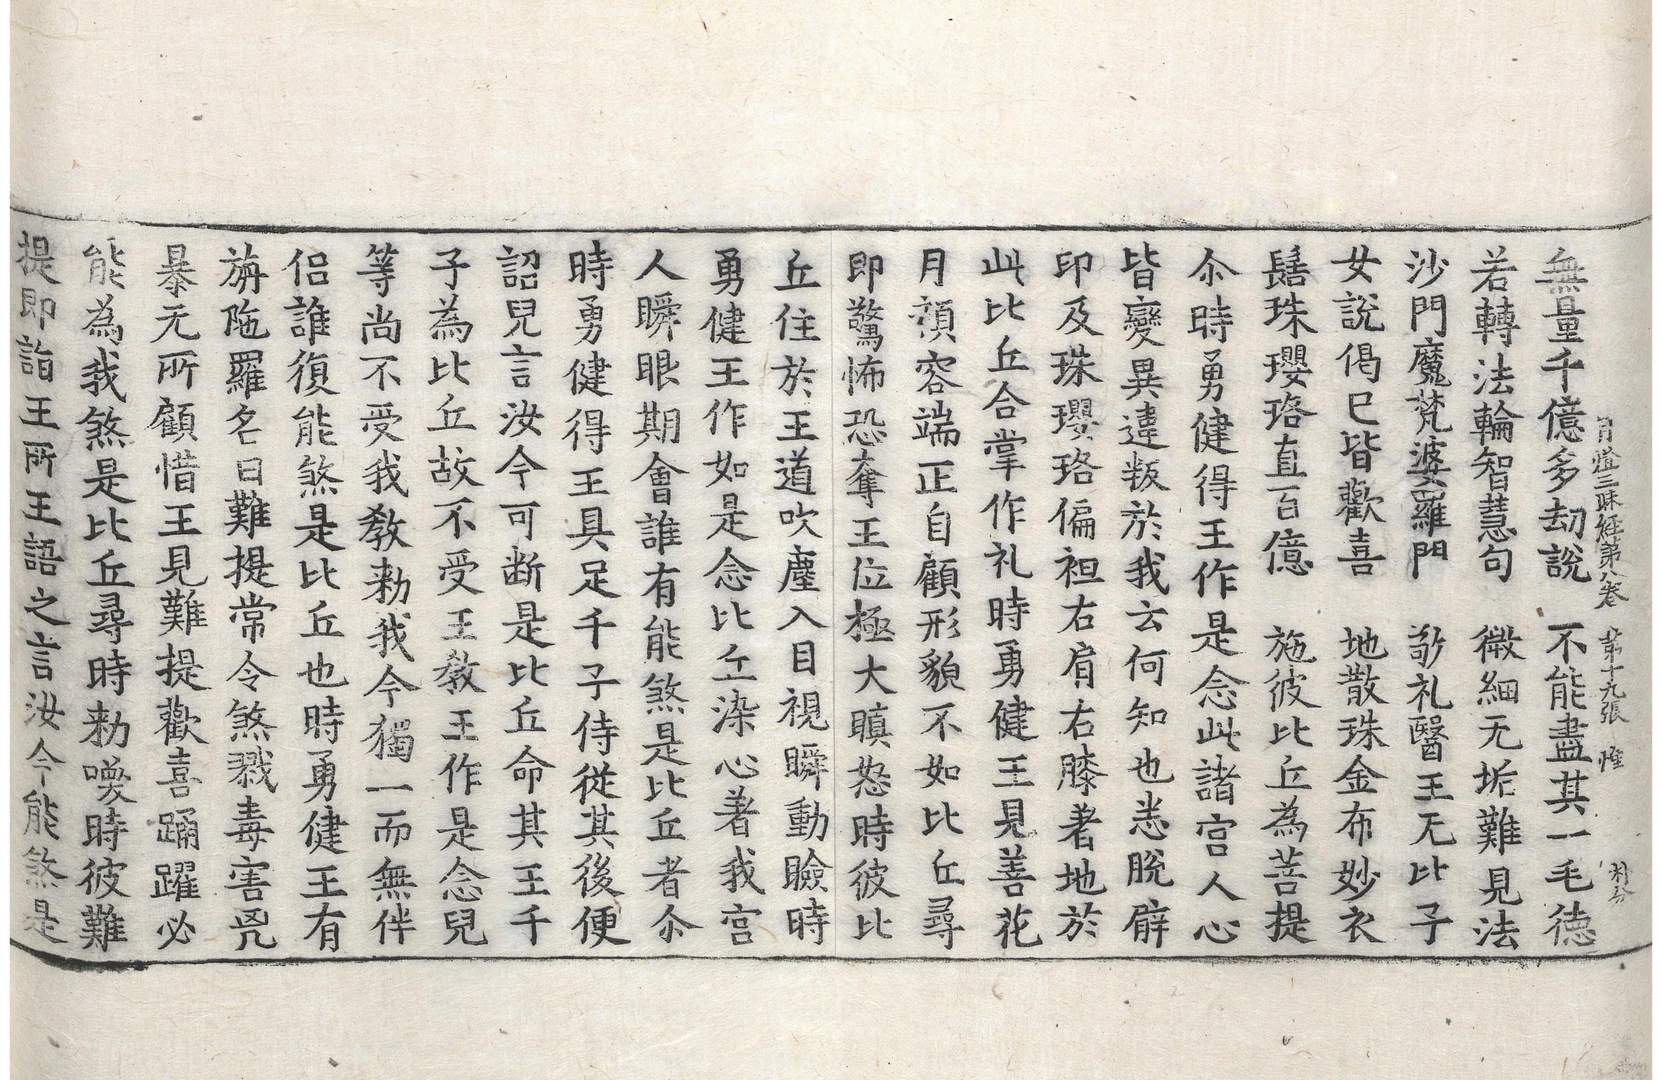 月燈三昧經第八卷 第十九張 惟
無量千億多劫說 不能盡其一毛德
若轉法輪智慧句 微細无垢難見法
沙門魔梵婆羅門 敬礼醫王无比子
女說偈巳皆歡喜 地散珠金布妙衣
髻珠瓔珞直百億 施彼比丘為菩提
尒時勇健得王作是念此諸宮人心
皆變異違叛於我云何知也悉脫臂
印及珠瓔珞偏袒右肩右膝著地於
此比丘合掌作礼時勇健王見善花
月顏容端正自顧形貌不如比丘尋
即驚怖恐奪王位極大瞋怒時彼比
丘住於王道吹塵入目視瞬動瞼時
勇健王作如是念比丘染心著我宮
人瞬眼期會誰有能煞是比丘者尒
時勇健得王具足千子侍從其後便
詔兒言汝今可斷是比丘命其王千
子為比丘故不受王敎王作是念兒
等尚不受我敎勑我今獨一而無伴
侶誰復能煞是比丘也時勇健王有
旃陁羅名曰難提常令煞戮毒害兇
暴无所顧惜王見難提歡喜踊躍必
能為我煞是比丘尋時勑喚時彼難
提即詣王所王語之言汝今能煞是